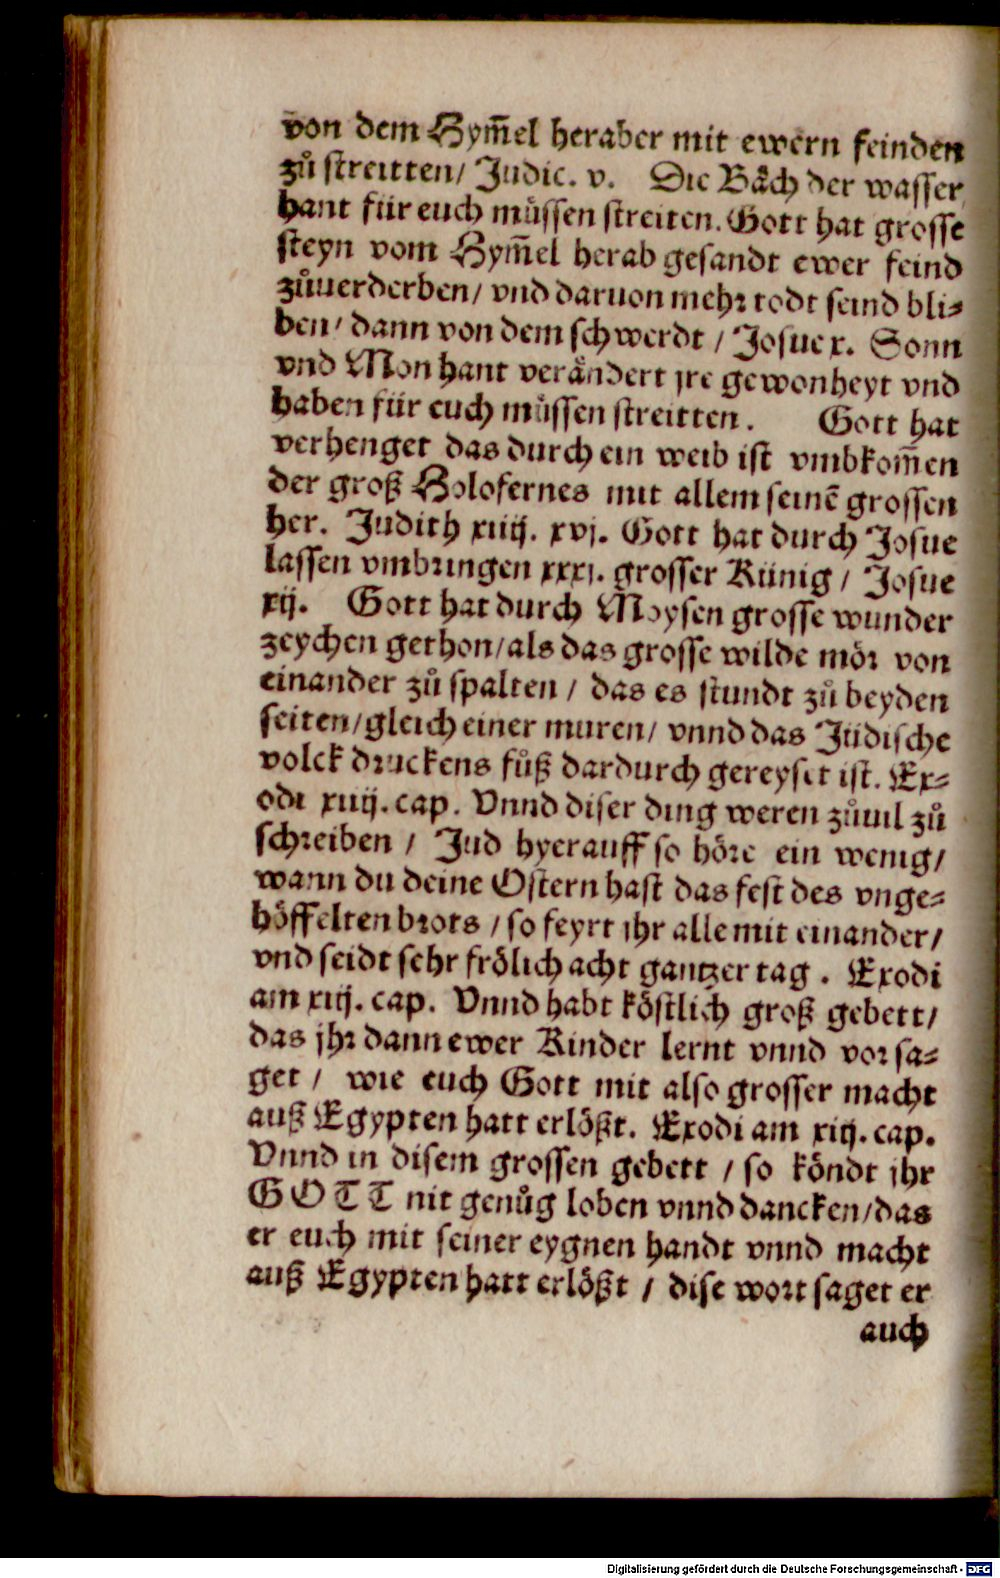 von dem Hym̃el heraber mit ewern feinden
zů streitten/ Judic. v. Die Bäch der wasser
hant für euch müssen streiten. Gott hat grosse
steyn vom Hym̃el herab gesandt ewer feind
zůuerderben/ vnd daruon mehr todt seind bli⸗
ben/ dann von dem schwerdt / Josue x. Sonn
vnd Mon hant verändert jre gewonheyt vnd
haben für euch müssen streitten. Gott hat
verhenget das durch ein weib ist vmbkom̃en
der groß Holofernes mit allem seinē grossen
her. Judith xiiij. xvj. Gott hat durch Josue
lassen vmbringen xxxj. grosser Künig / Josue
xij. Gott hat durch Moysen grosse wunder
zeychen gethon/als das grosse wilde mör von
einander zů spalten / das es stundt zů beyden
seiten/gleich einer muren/ vnnd das Jüdische
volck druckens fůß dardurch gereyset ist. Ex⸗
odi xiiij. cap. Vnnd diser ding weren zůuil zů
schreiben / Jud hyerauff so höre ein wenig/
wann du deine Ostern hast das fest des vnge⸗
höffelten brots / so feyrt jhr alle mit einander/
vnd seidt sehr frölich acht gantzer tag. Exodi
am xiij. cap. Vnnd habt köstlich groß gebett/
das jhr dann ewer Kinder lernt vnnd vor sa⸗
get / wie euch Gott mit also grosser macht
auß Egypten hatt erlößt. Exodi am xiij. cap.
Vnnd in disem grossen gebett / so köndt jhr
GOTT nit genůg loben vnnd dancken/das
er euch mit seiner eygnen handt vnnd macht
auß Egypten hatt erlößt / dise wort saget er
auch
Digitalisierung gefördert durch die Deutsche Forschungsgemeinschaft - DFG